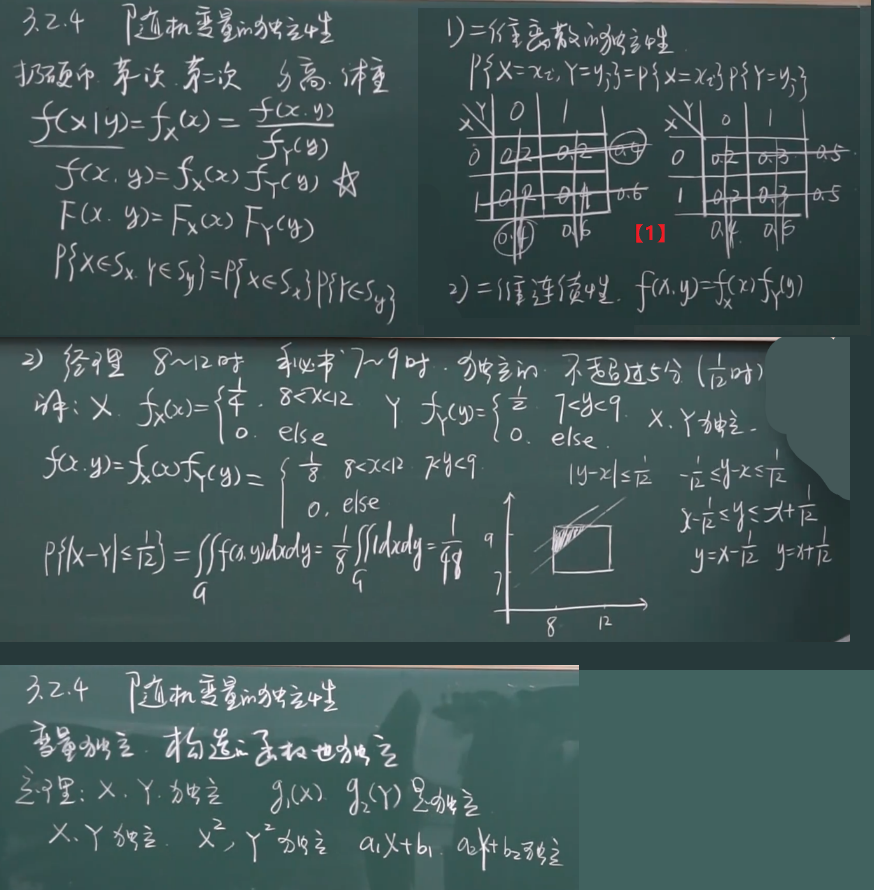 3.2.4 随机变量的独立性
扔硬币 第一次 第二次 身高.体重
f(x|y)=f_X(x)=f(x.y)/f_Y(y)
f(x.y)=f_X(x) f_Y(y) ☆
F(x.y)=F_X(x) F_Y(y)
P{X∈S_x.Y∈S_y}=P{X∈S_x}P{Y∈S_y}
1)二维离散的独立性
P{X=x_i,Y=y_j}=P{X=x_i}P{Y=y_j}
X\Y 0 1
0 0.2 0.2 0.4
1 0.2 0.4 0.6
0.4 0.6
X\Y 0 1
0 0.2 0.3 0.5
1 0.2 0.3 0.5
0.4 0.6
【1】
2)二维连续性. f(x.y)=f_X(x)f_Y(y)
2) 经理 8~12时 秘书7~9时.独立的 不超过5分(1/12时)
解:X. f_X(x)={1/4. 8<x<12 0. else Y f_Y(y)={1/2. 7<y<9. 0. else. X.Y独立.
f(x.y)=f_X(x)f_Y(y)={1/8 8<x<12 7<y<9. 0. else
|y-x|≤1/12 -1/12≤y-x≤1/12
x-1/12≤y≤x+1/12
y=x-1/12 y=x+1/12
P{|X-Y|≤1/12}=∬_G f(x.y)dxdy=1/8∬_G 1dxdy=1/48
9
7
8 12
3.2.4 随机变量的独立性
变量独立.构造的函数也独立
定理:X.Y.独立 g₁(X) g₂(Y)是独立
X.Y独立. X²,Y²独立 a₁X+b₁. a₂Y+b₂独立